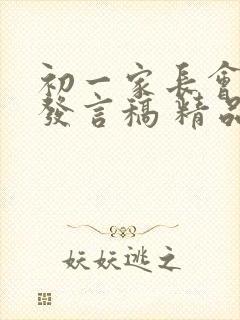 初一家長會
發言稿 精品
妖妖逃之